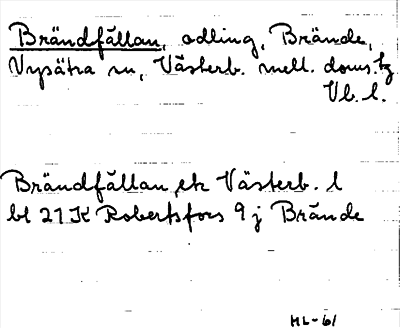 Brändfällan, odling, Brände,
Nysätra sn, Västerb. mell. doms.tg
Vb. l.
Brändfällan, ek Västerb. l
bl 21 K Robertsfors 9 j Brände
HL-61